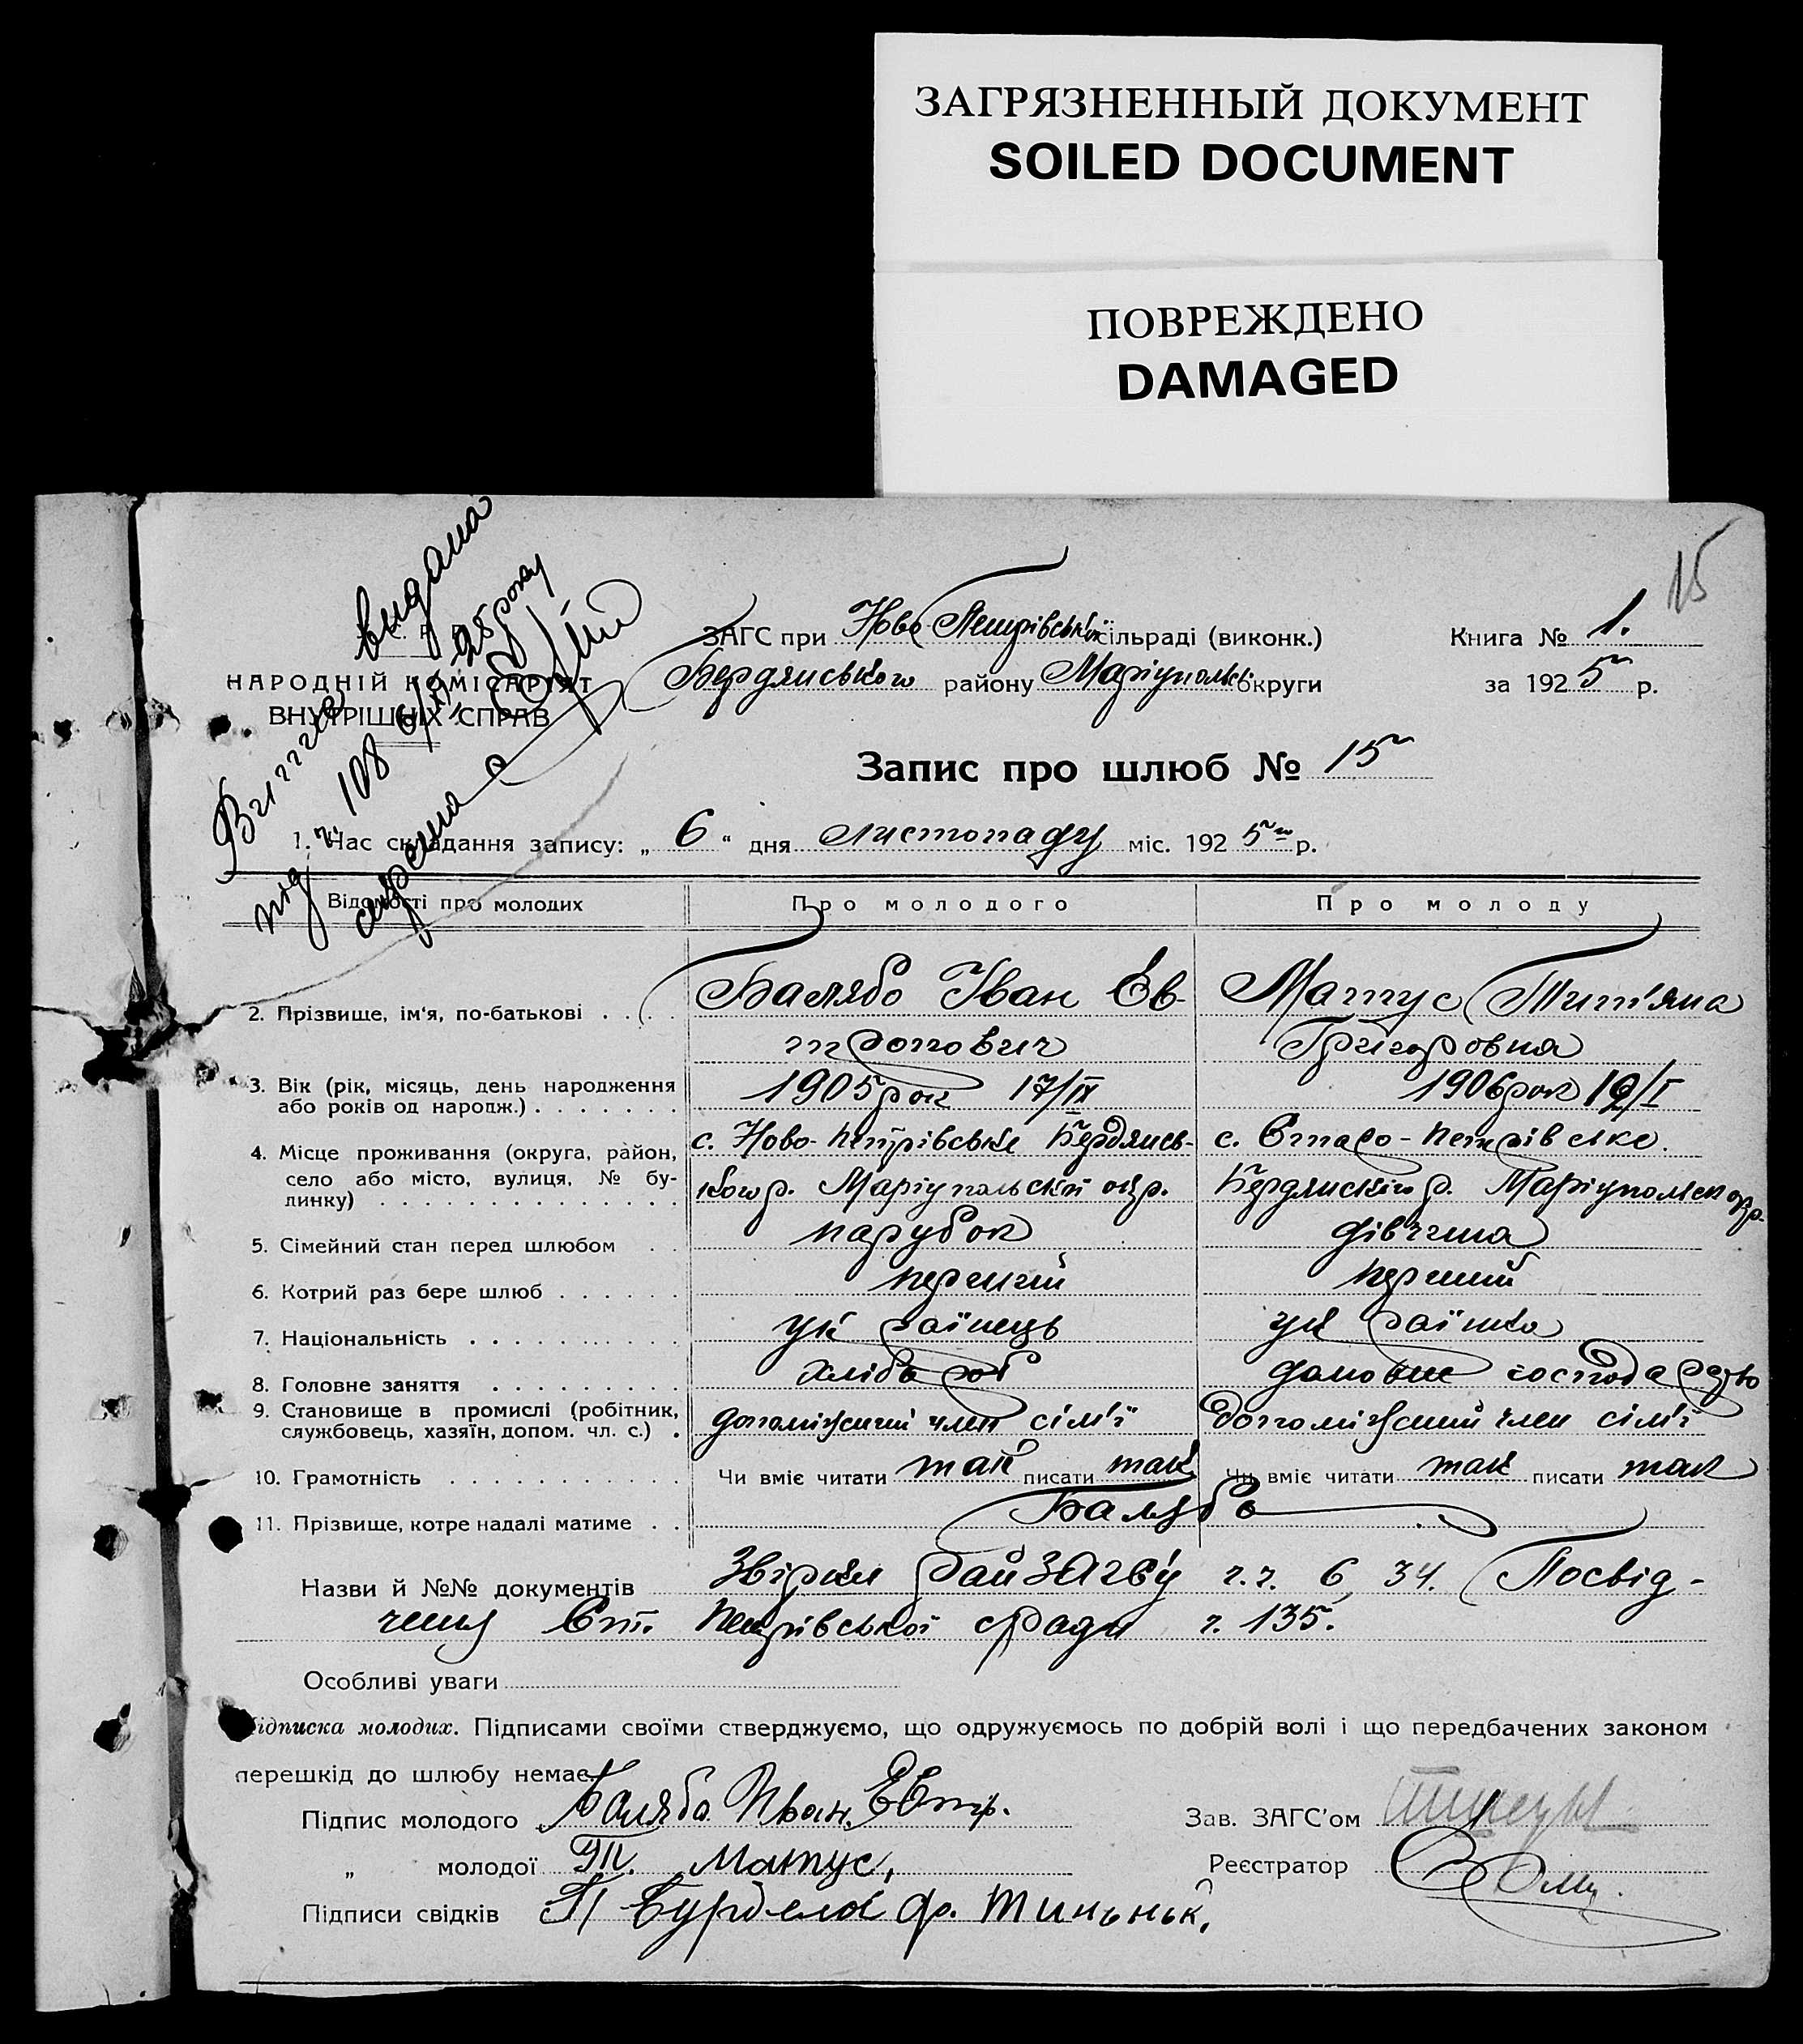 ЗАГРЯЗНЕННЫЙ ДОКУМЕНТ
SOILED DOCUMENT
ПОВРЕЖДЕНО
DAMAGED
15
Виппись видана
під ч. 108 6/XI-25 року
НАРОДНІЙ КОМІСАРІЯТ
ВНУТРІШНІХ СПРАВ
ЗАГС при Ново Петрівській сільраді (виконк.)
Книга № 1.
Бердянського району Маріупольсь округи
за 1925 р.
Запис про шлюб № 15
1. Час складання запису: „ 6 “ дня Листопаду міс. 1925 р.
Відомості про молодих
Про молодого
Про молоду
2. Прізвище, ім'я, по-батькові
Балябо Іван Ев-
тропович
Матус Тит'яна
Григоровна
3. Вік (рік, місяць, день народження
або років од нарояж.)
1905 рок 17/IX
1906 рок /I
4. Місце проживання (округа, район,
село або місто, вулиця, № бу-
динку)
с. Ново-Петрівське Бердянсь-
кого р. Маріупольскої окр.
с. Старо-Петрівське.
Бердянского р. Маріупольск окр.
5. Сімейний стан перед шлюбом
парубок
дівчина
6. Котрий раз бере шлюб
перший
перший
7. Національність
українець
українка
8. Головне заняття
хлібороб
домовне господарство
9. Становище в промислі (робітник,
службовець, хазяїн, допом. чл. с.)
допоміжний член сім'ї
допоміжний член сім'ї
10. Грамотність
Чи вміє читати так писати так
Чи вміє читати так писати так
11. Прізвище, котре надалі матиме
Балябо
Назви й №№ документів
райЗАГСу ч.ч. 6, 34. Посвід-
чення Ст. Петрівської с/ради ч. 135.
Особливі уваги
Підписка молодих. Підписами своїми стверджуємо, що одружуємось по добрій волі і що передбачених законом
перешкід до шлюбу немає.
Підпис молодого Баляба Иван. Евтр.
Зав. ЗАГС'ом
„ молодої Т. Матус,
Реєстратор
Підписи свідків